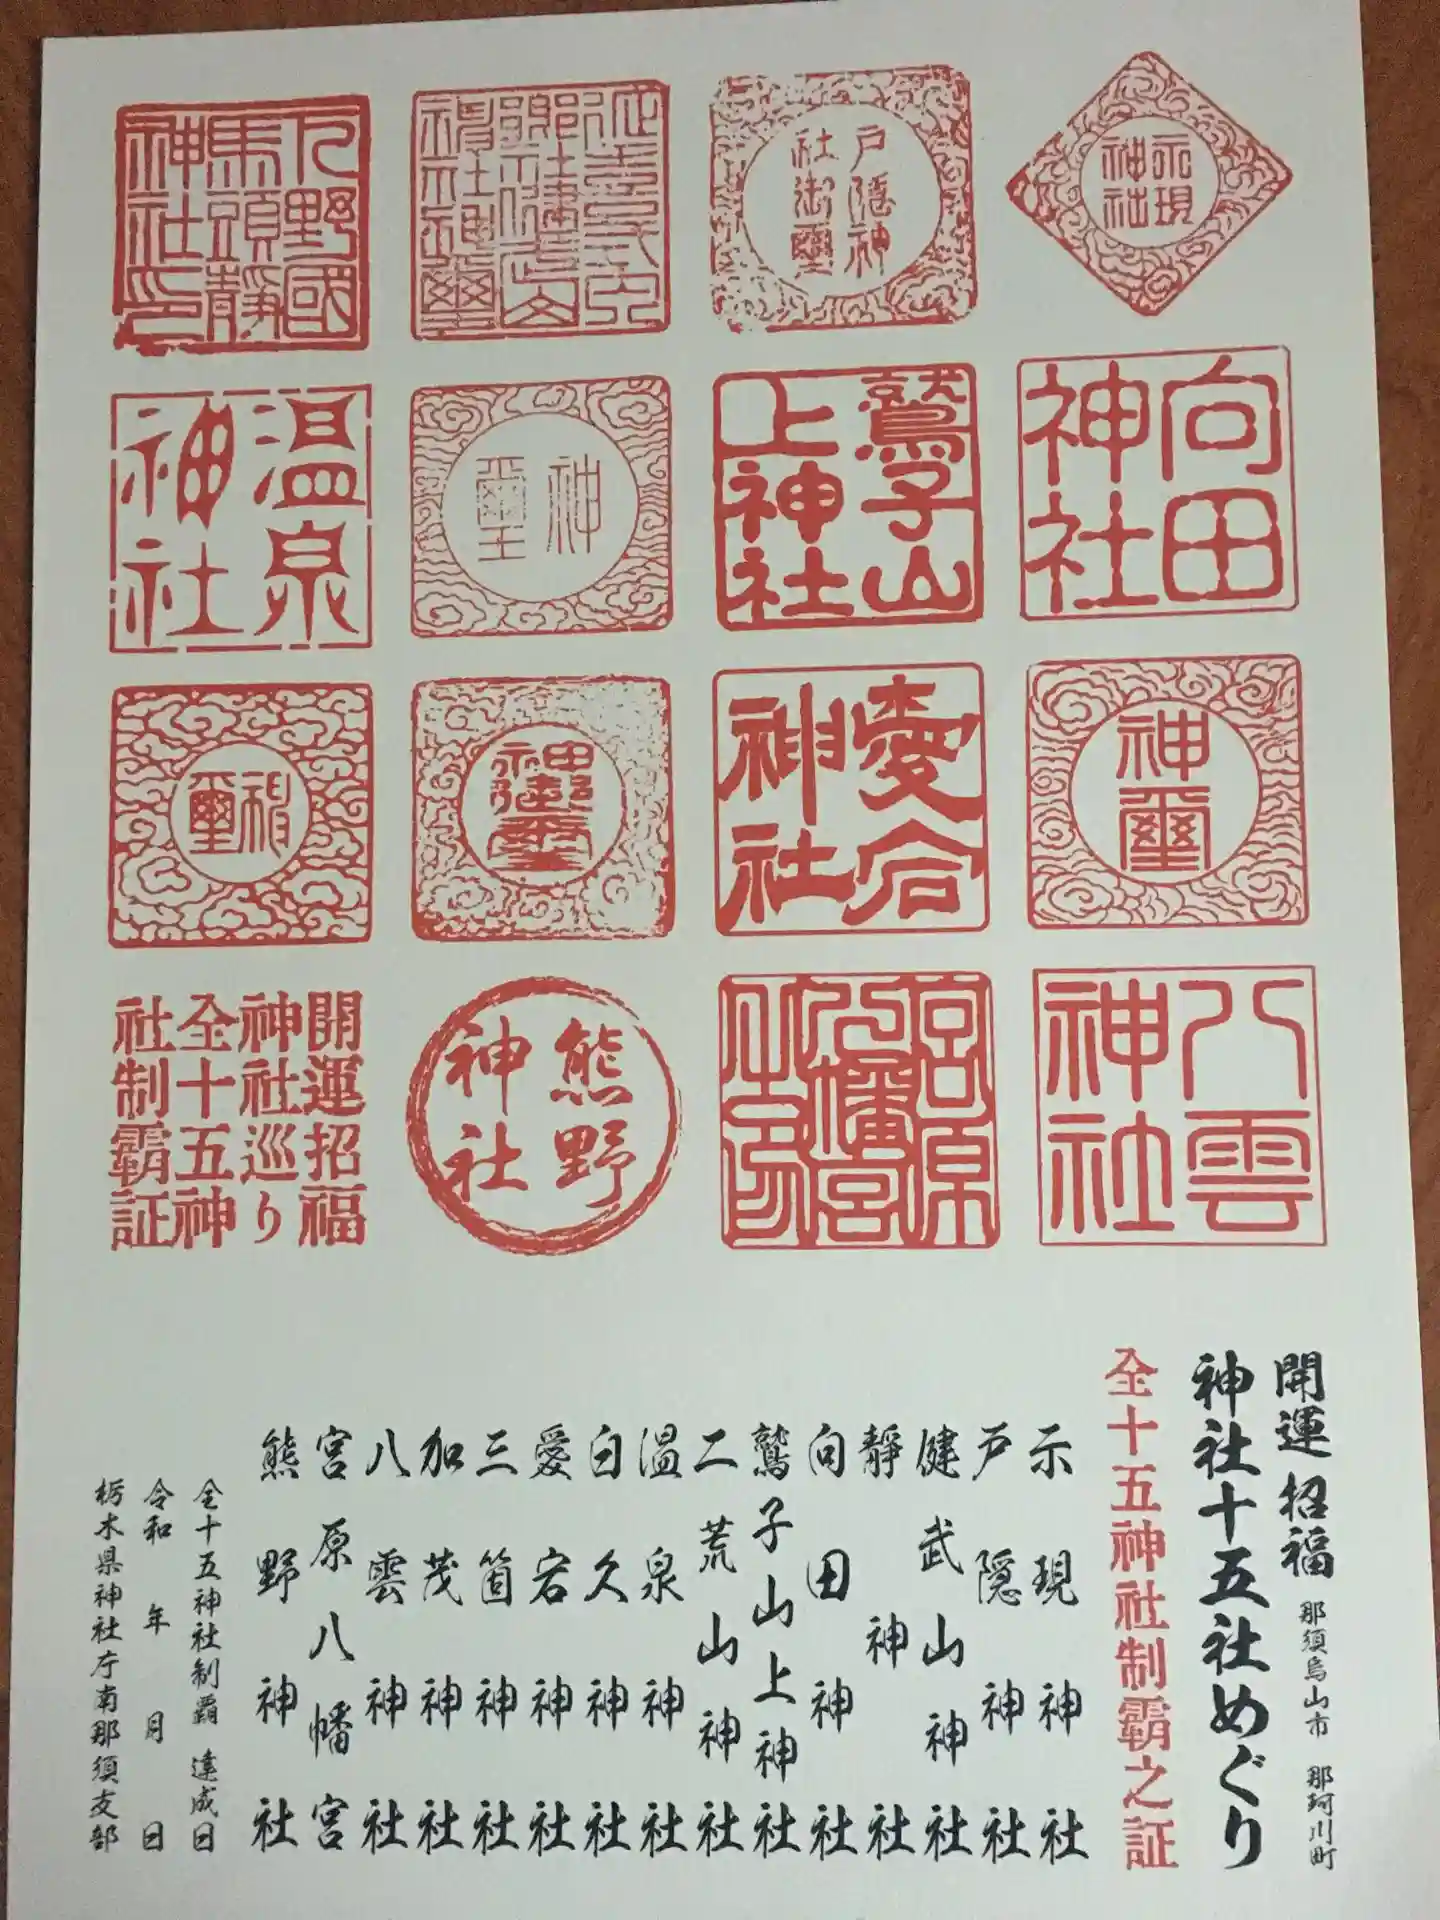 示現
神社
戸隠神
社御璽
下野國
馬頭靜
神社印
向田
神社
鷲子山
上神社
神璽
温泉
神社
神璽
愛宕
神社
神璽
八雲
神社
宮原
八幡宮
熊野
神社
開運招福
神社巡り
全十五神
社制覇証
開運招福
那須烏山市 那珂川町
神社十五社めぐり
全十五神社制覇之証
示現神社
戸隠神社
健武山神社
靜神社
向田神社
鷲子山上神社
二荒山神社
温泉神社
白久神社
愛宕神社
三箇神社
加茂神社
八雲神社
宮原八幡宮
熊野神社
全十五神社制覇 達成日
令和 年 月 日
栃木県神社庁南那須支部